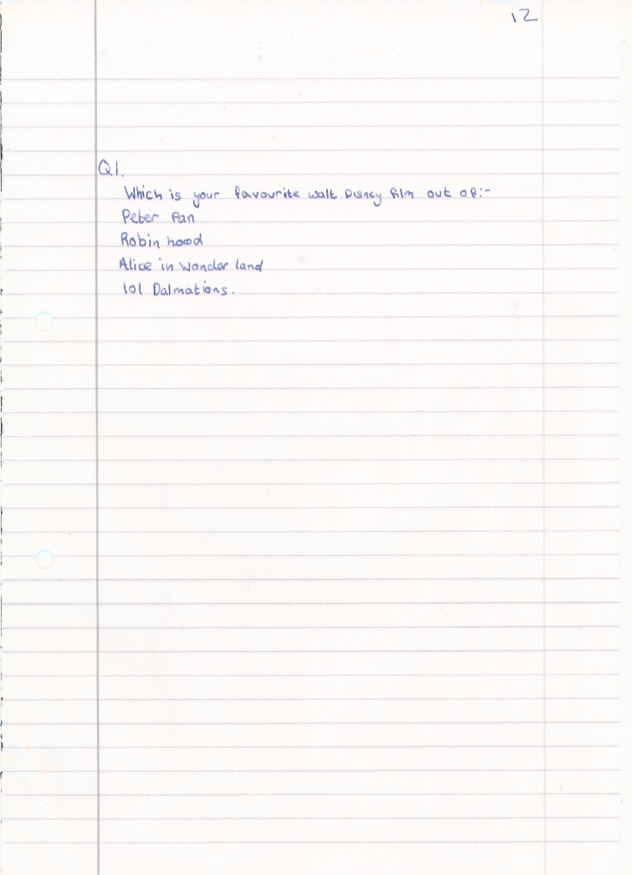 12
Q1.
Which is your favourite walt Disney film out of:-
Peter Pan
Robin hood
Alice in wonder land
101 Dalmations.